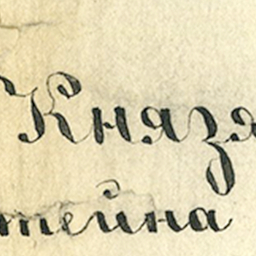 Князя
тейна